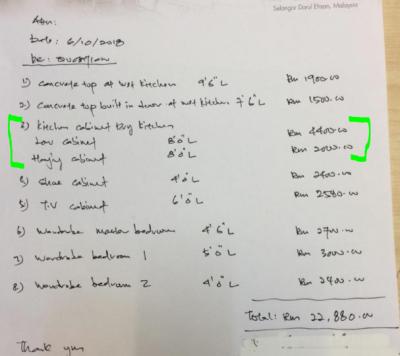 Selangor Darul Ehsan, Malaysia
Attn:
Date: 6/10/2018
Re: Quotation
1) Concrete top at wet kitchen 9'6" L Rm 1900.00
2) Concrete top built in door at wet kitchen 7'6" L Rm 1500.00
3) Kitchen cabinet Dry kitchen
Low cabinet 8'0" L Rm 4400.00
Hanging cabinet 8'0" L Rm 2000.00
Shoe cabinet 4'0" L Rm 2400.00
5) T.V cabinet 6'0" L Rm 2580.00
6) Wardrobe master bedroom 4'6" L Rm 2700.00
7) Wardrobe bedroom 1 5'0" L Rm 3000.00
8) Wardrobe bedroom 2 4'0" L Rm 2400.00
Total: Rm 22,880.00
Thank you